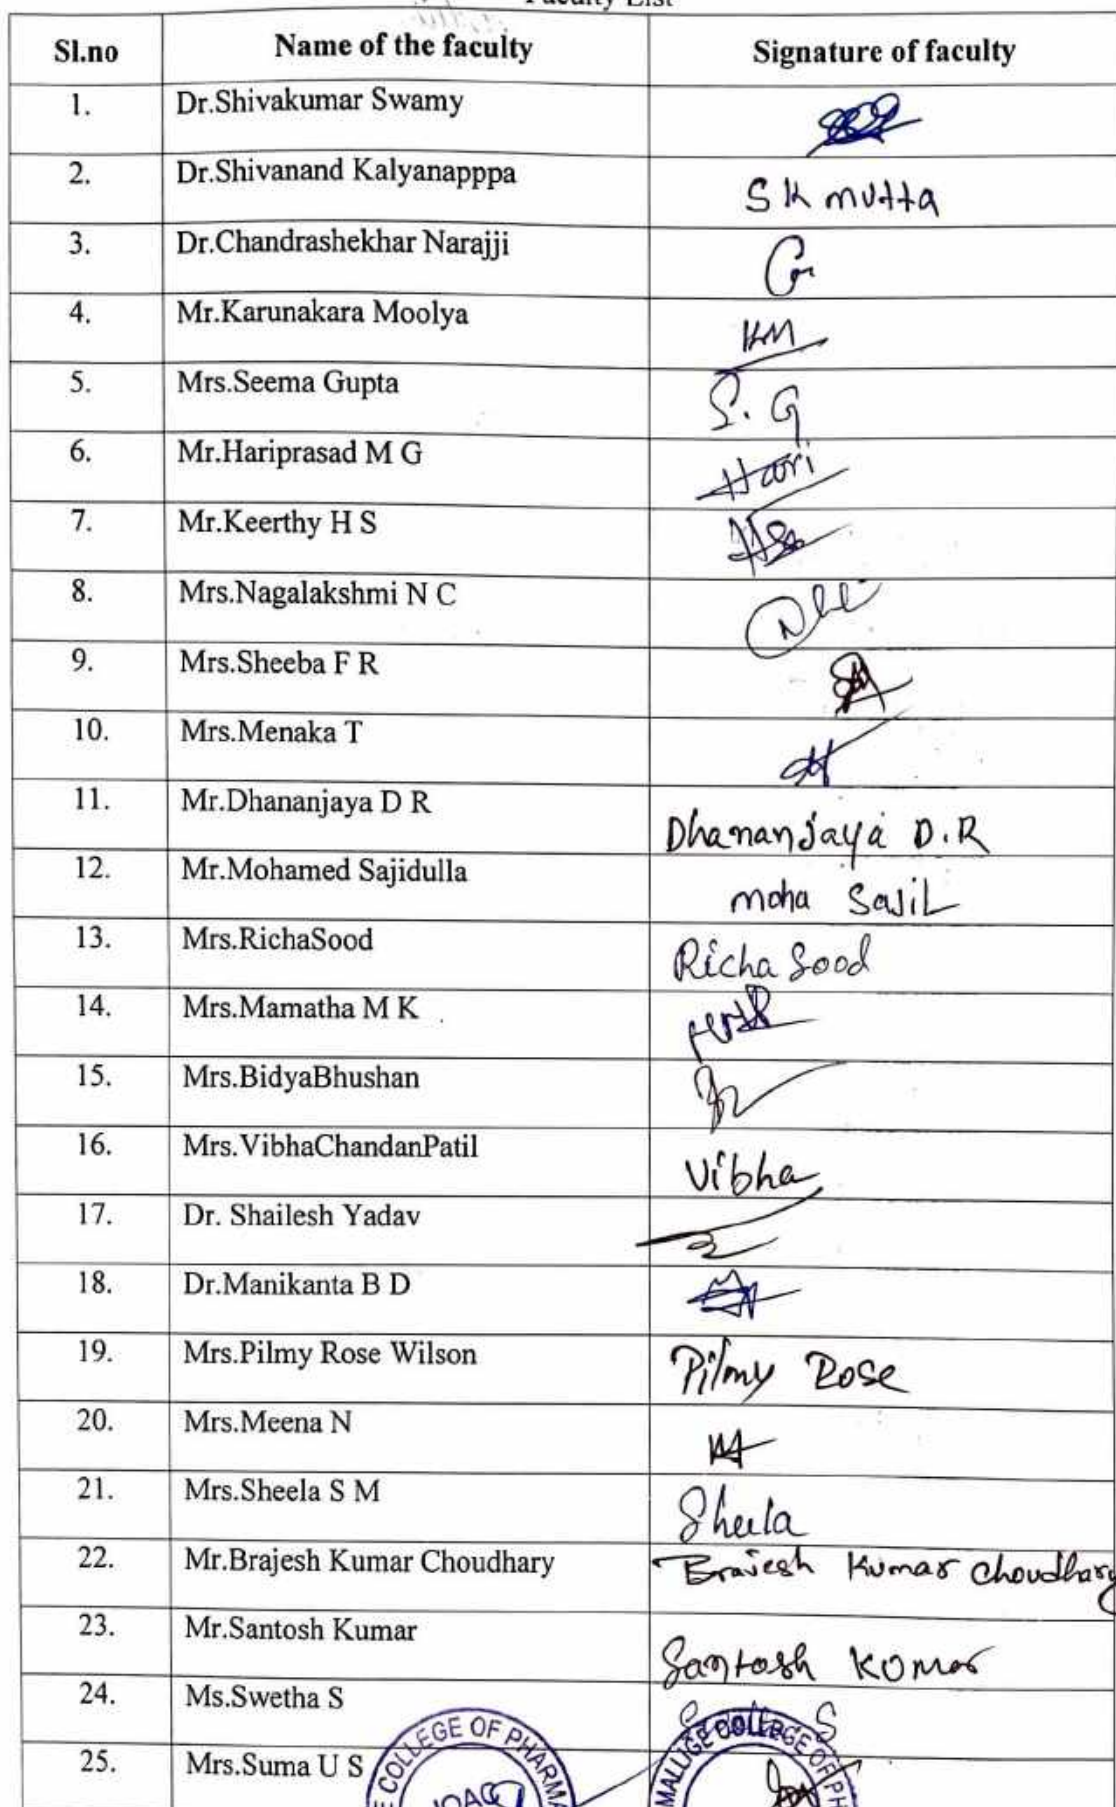 Faculty List
Sl.no Name of the faculty Signature of faculty
1. Dr.Shivakumar Swamy
2. Dr.Shivanand Kalyanapppa S K mutta
3. Dr.Chandrashekhar Narajji
4. Mr.Karunakara Moolya KM
5. Mrs.Seema Gupta S. G
6. Mr.Hariprasad M G Hari
7. Mr.Keerthy H S
8. Mrs.Nagalakshmi N C
9. Mrs.Sheeba F R
10. Mrs.Menaka T
11. Mr.Dhananjaya D R Dhananjaya D.R
12. Mr.Mohamed Sajidulla moha Sajil
13. Mrs.RichaSood Richa Sood
14. Mrs.Mamatha M K
15. Mrs.BidyaBhushan
16. Mrs.VibhaChandanPatil Vibha
17. Dr. Shailesh Yadav
18. Dr.Manikanta B D
19. Mrs.Pilmy Rose Wilson Pilmy Rose
20. Mrs.Meena N
21. Mrs.Sheela S M Sheela
22. Mr.Brajesh Kumar Choudhary Brajesh Kumar Choudhary
23. Mr.Santosh Kumar Santosh Kumar
24. Ms.Swetha S S
25. Mrs.Suma U S
COLLEGE OF PHARMA
MALLIGE COLLEGE OF PH